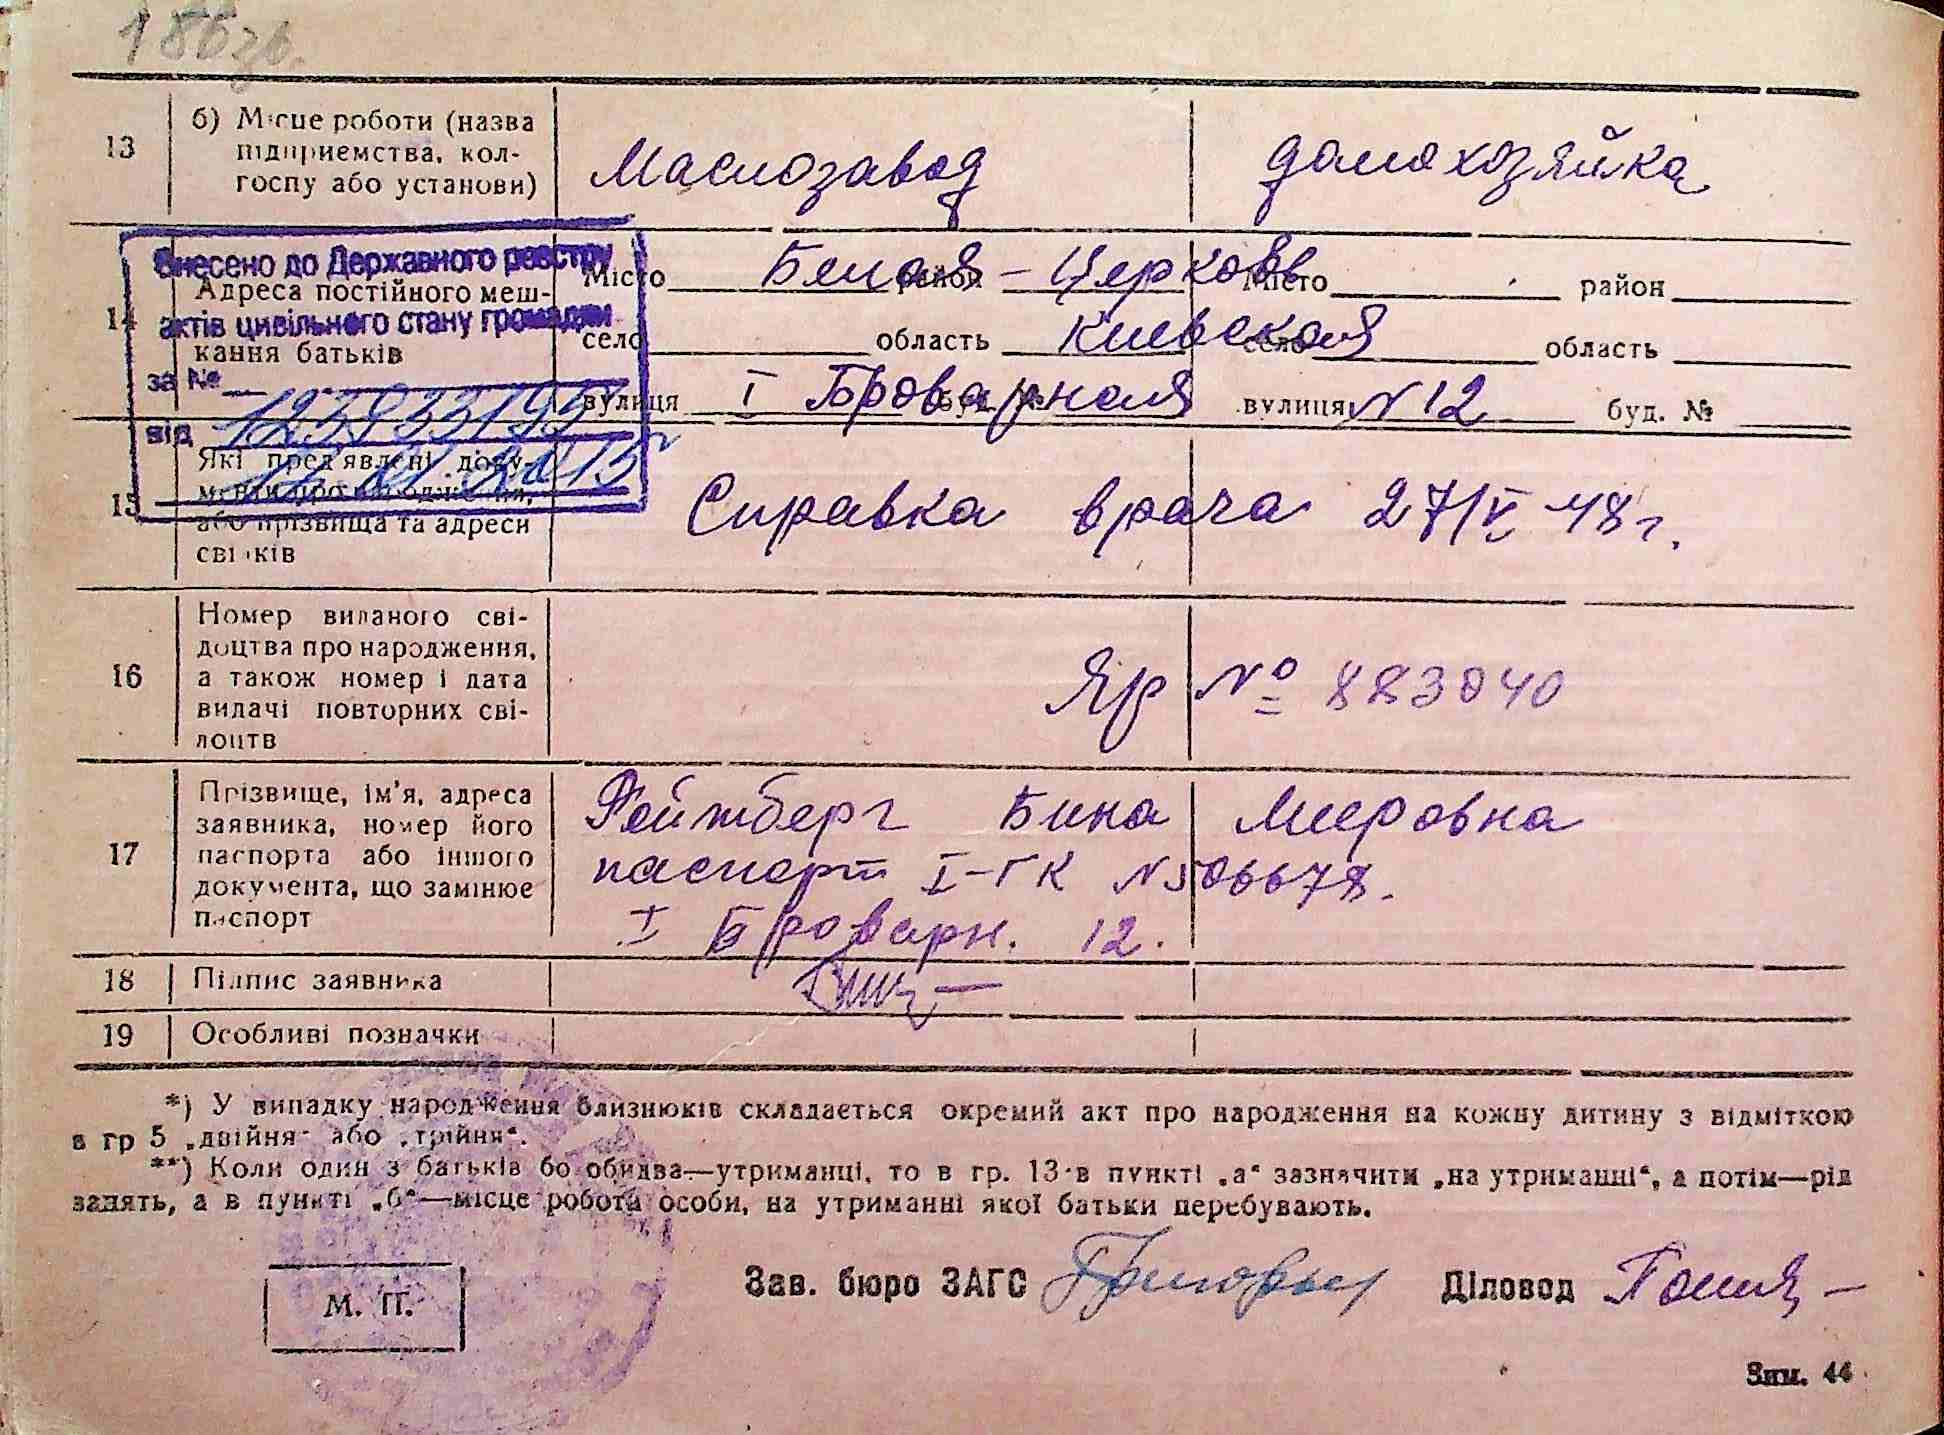 186зв.
13
б) Місце роботи (назва
підприємства, кол-
госпу або установи)
Маслозавод
домохозяйка
Внесено до Державного реєстру
актів цивільного стану громадян
за №
від
14
Адреса постійного меш-
кання батьків
Місто Белая - Церковь район
село область Киевская
вулиця І Броварная
Місто район
село область
вулиця N 12 буд. №
15
Які пред'явлені доку-
менти про народження,
або прізвища та адреси
свідків
Справка врача 27/V 48 г.
16
Номер виданого сві-
доцтва про народження,
а також номер і дата
видачі повторних сві-
доцтв
Яр № 883040
17
Прізвище, ім'я, адреса
заявника, номер його
паспорта або іншого
документа, що замінює
паспорт
Ройтберг Бина Мееровна
паспорт I-ГК N 506678.
I Броварн. 12.
18
Підпис заявника
19
Особливі позначки
*) У випадку народження близнюків складається окремий акт про народження на кожну дитину з відміткою
в гр 5 „двійня" або „трійня".
**) Коли один з батьків бо обидва—утриманці, то в гр. 13 в пункті „а" зазначити „на утриманні", а потім—рід
занять, а в пункті „б"—місце робота особи, на утриманні якої батьки перебувають.
М. П.
Зав. бюро ЗАГС
Діловод
Зим. 44